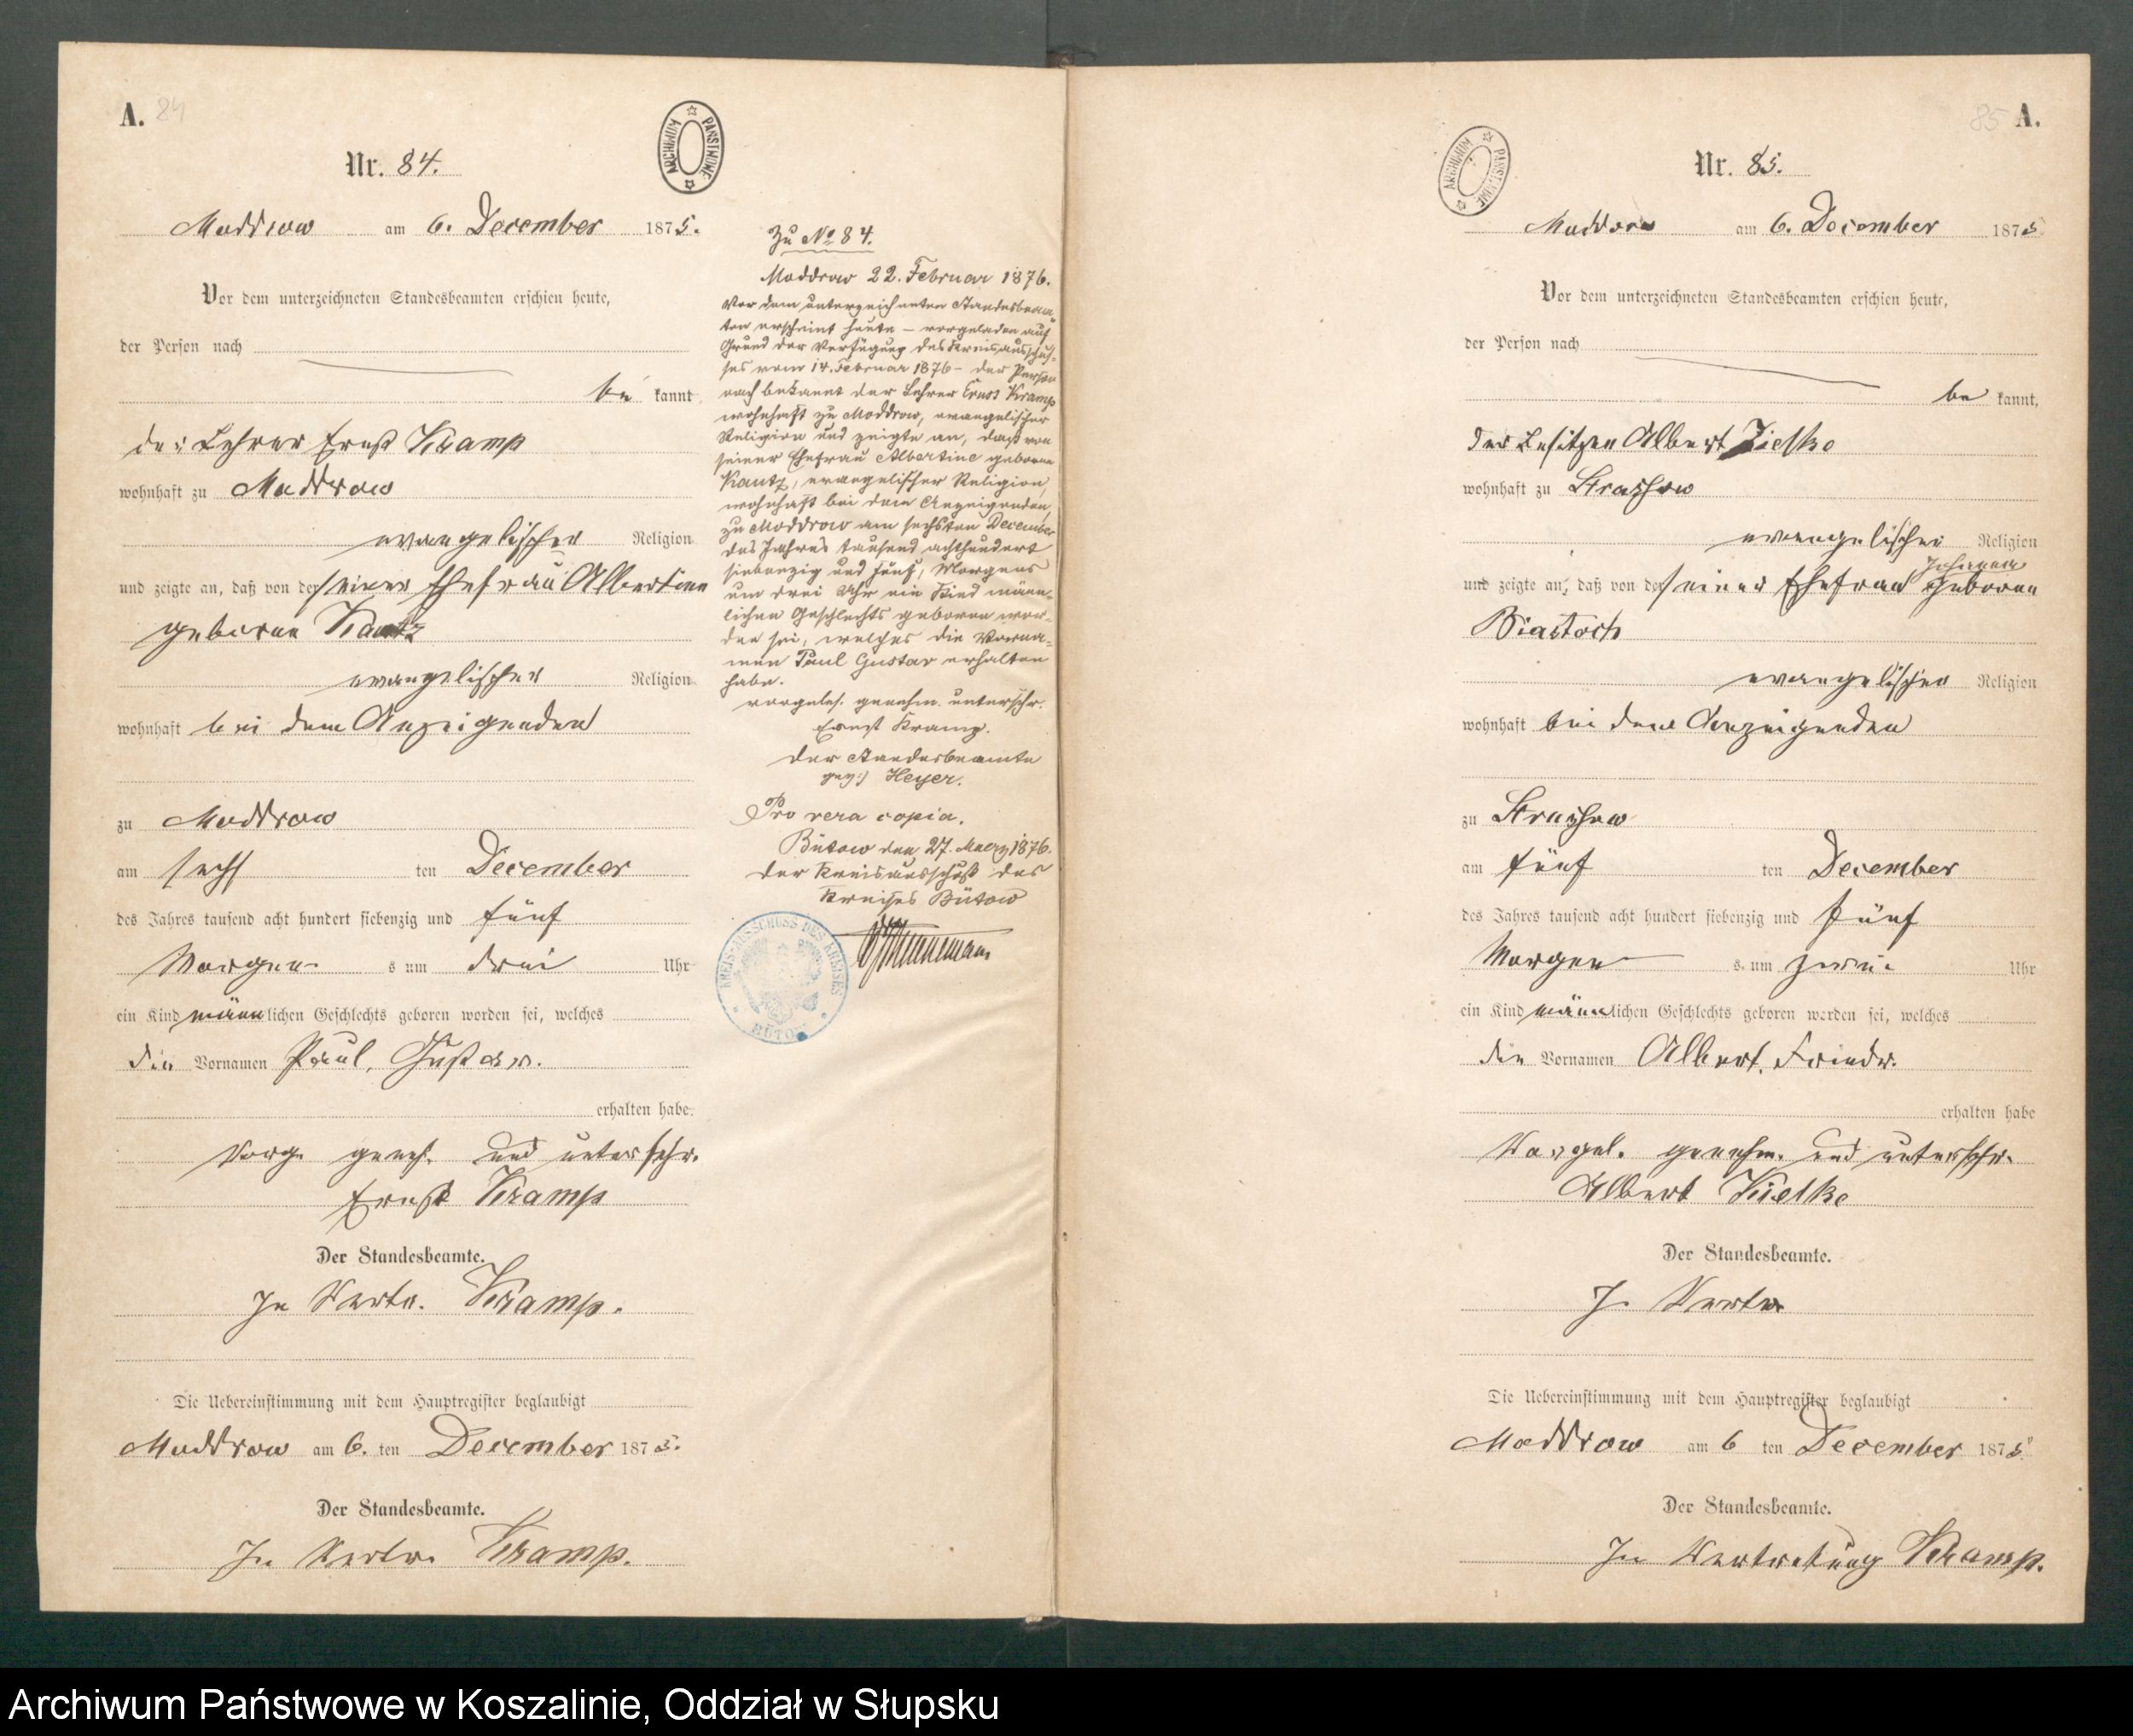 A. 84
ARCHIWUM PAŃSTWOWE
Nr. 84.
Moddrow am 6. December 1875.
Vor dem unterzeichneten Standesbeamten erschien heute,
der Person nach
be kannt,
der Lehrer Ernst Kramp
wohnhaft zu Moddrow
evangelischer Religion
und zeigte an, daß von der seiner Ehefrau Albertine
geborene Kautz
evangelischer Religion
wohnhaft bei dem Anzeigenden
zu Moddrow
am sechs ten December
des Jahres tausend acht hundert siebenzig und fünf
Morgens um drei Uhr
ein Kind männlichen Geschlechts geboren worden sei, welches
die Vornamen Paul, Gustav.
erhalten habe.
Vorg. geneh. und unterschr.
Ernst Kramp
Der Standesbeamte.
In Vertr. Kramp.
Die Uebereinstimmung mit dem Hauptregister beglaubigt
Moddrow am 6. ten December 1875.
Der Standesbeamte.
In Vertr. Kramp.
Zu No 84.
Moddrow 22. Februar 1876.
Vor dem unterzeichneten Standesbeam-
ten erscheint heute – vorgeladen auf
Grund der Verfügung des Kreisausschus-
ses vom 14. Februar 1876 – der Person
nach bekannt der Lehrer Ernst Kramp
wohnhaft zu Moddrow, evangelischer
Religion und zeigte an, daß von
seiner Ehefrau Albertine geborene
Kautz, evangelischer Religion,
wohnhaft bei dem Anzeigenden,
zu Moddrow am sechsten December
des Jahres tausend achthundert
siebenzig und fünf, Morgens
um drei Uhr ein Kind männ-
lichen Geschlechts geboren wor-
den sei, welches die Vorna-
men Paul Gustav erhalten
habe.
vorgeles. genehm. unterschr.
Ernst Kramp.
Der Standesbeamte
gez:) Heyer.
Pro vera copia.
Bütow den 27. Maerz 1876.
Der Kreisausschuß des
Kreises Bütow
KREIS-AUSSCHUSS DES KREISES BÜTOW
85 A.
ARCHIWUM PAŃSTWOWE
Nr. 85.
Moddrow am 6. December 1875
Vor dem unterzeichneten Standesbeamten erschien heute,
der Person nach
be kannt,
der Besitzer Albert Zielke
wohnhaft zu Strussow
evangelischer Religion
Johanna
und zeigte an, daß von der seiner Ehefrau geborene
Biastoch
evangelischer Religion
wohnhaft bei dem Anzeigenden
zu Strussow
am fünf ten December
des Jahres tausend acht hundert siebenzig und fünf
Morgens um zwei Uhr
ein Kind männlichen Geschlechts geboren worden sei, welches
die Vornamen Albert, Friedr.
erhalten habe
Vorgel. genehm. und unterschr.
Albert Zielke
Der Standesbeamte.
In Vertr
Die Uebereinstimmung mit dem Hauptregister beglaubigt
Moddrow am 6 ten December 1875.
Der Standesbeamte.
In Vertretung Kramp.
Archiwum Państwowe w Koszalinie, Oddział w Słupsku